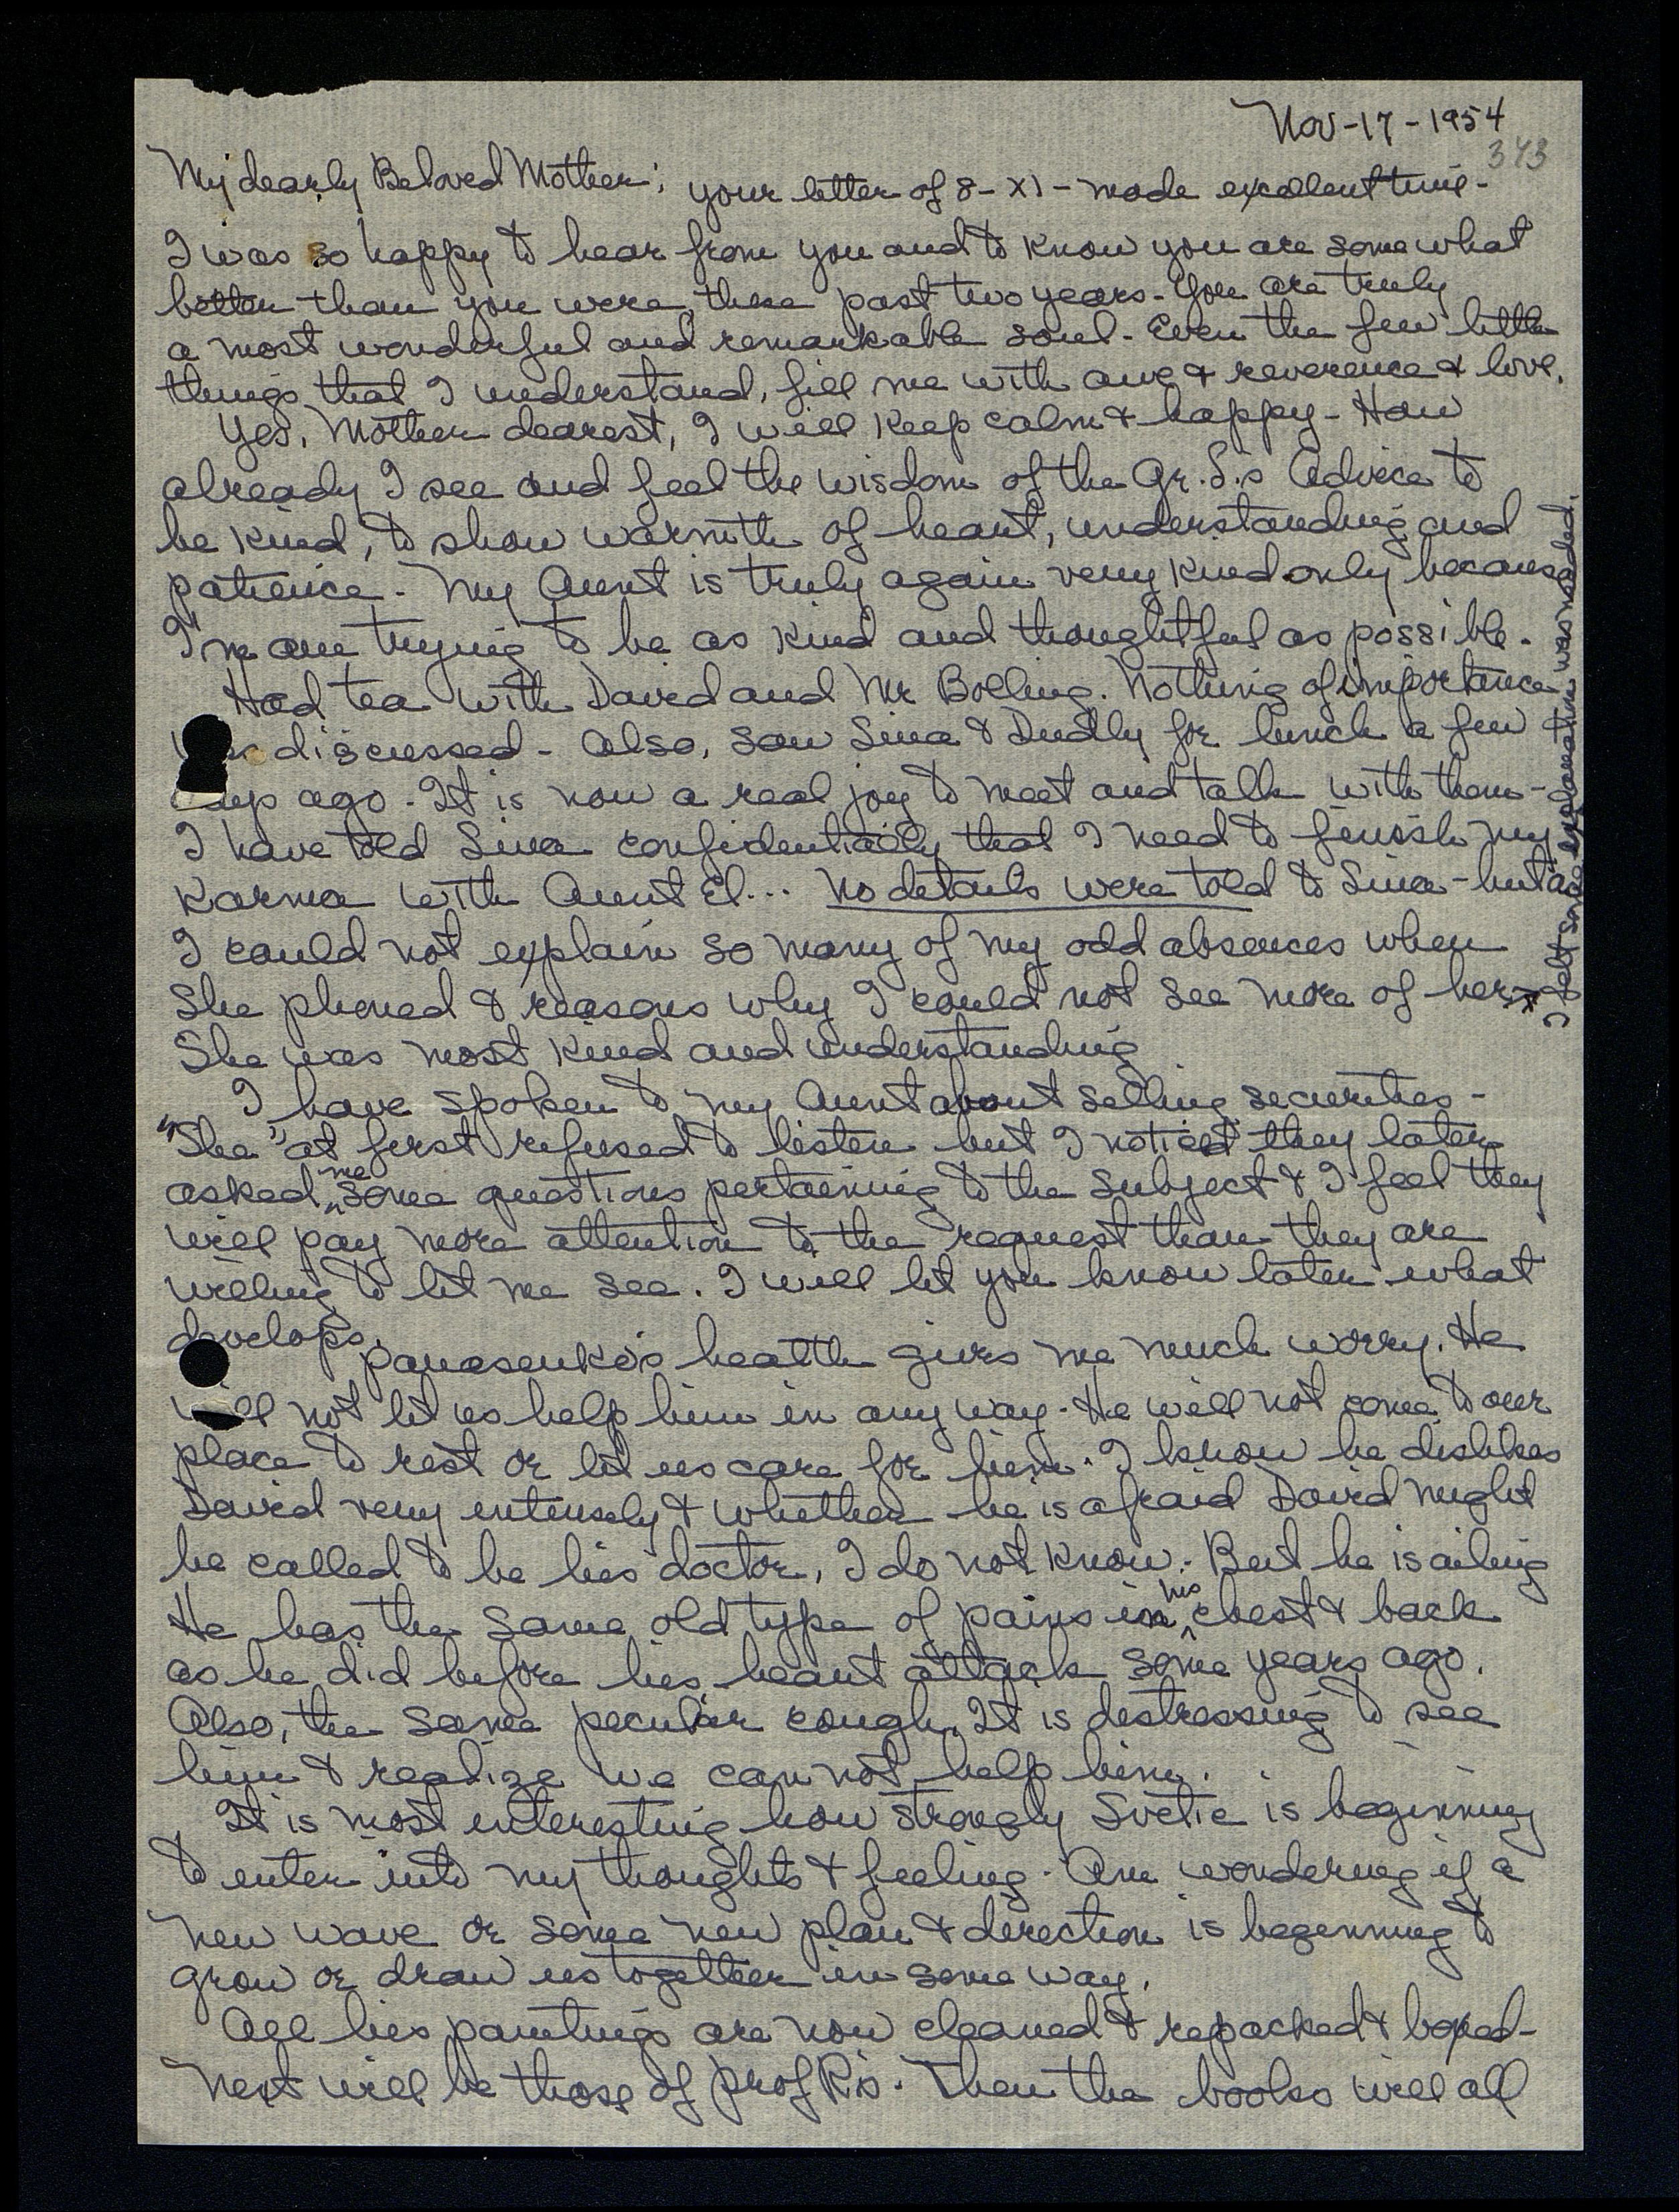 Nov-17-1954
343
My dearly Beloved Mother; your letter of 8-XI- made excellent time-
I was so happy to hear from you and to know you are somewhat
better than you were these past two years. You are truly
a most wonderful and remarkable soul- Even the few little
things that I understand, fill me with awe & reverence & love.
Yes, Mother dearest, I will keep calm & happy- How
already I see and feel the wisdom of the Gr. L.s Advice to
be kind, to show warmth of heart, understanding and
patience. My Aunt is truly again very kind only because
I'm am trying to be as kind and thoughtful as possible.
Had tea with David and Mr Bolling. Nothing of importance
discussed- Also, saw Sina & Dudly for lunch a few
ago. It is now a real joy to meet and talk with them-
I have told Sina confidentially that I need to finish my
Karma with Aunt El... No details were told to Sina- but
I could not explain so many of my odd absences when
she phoned & reasons why I could not see more of her-x
She was most kind and understanding
I felt some explanation was needed.
I have spoken to my Aunt about selling securities-
"She" at first refused to listen but I noticed they later
asked me some questions pertaining to the subject & I feel they
will pay more attention to the request than they are
willing to let me see. I will let you know later what
develops.
Panasenko's health gives me much worry. He
will not let us help him in any way. He will not come to our
place to rest or let us care for him. I know he dislikes
David very intensely & whether he is afraid David might
be called to be his doctor, I do not know. But he is ailing
He has the same old type of pains in his chest & back
as he did before his heart attack some years ago.
Also, the same peculiar cough. It is distressing to see
him & realize we can not help him.
It is most interesting how strongly Svetie is beginning
to enter into my thoughts & feeling. Am wondering if a
new wave or some new plan & direction is beginning to
grow or draw us together in some way.
All his paintings are now cleaned & repacked & boxed-
Next will be those of Prof R's. Then the books will all